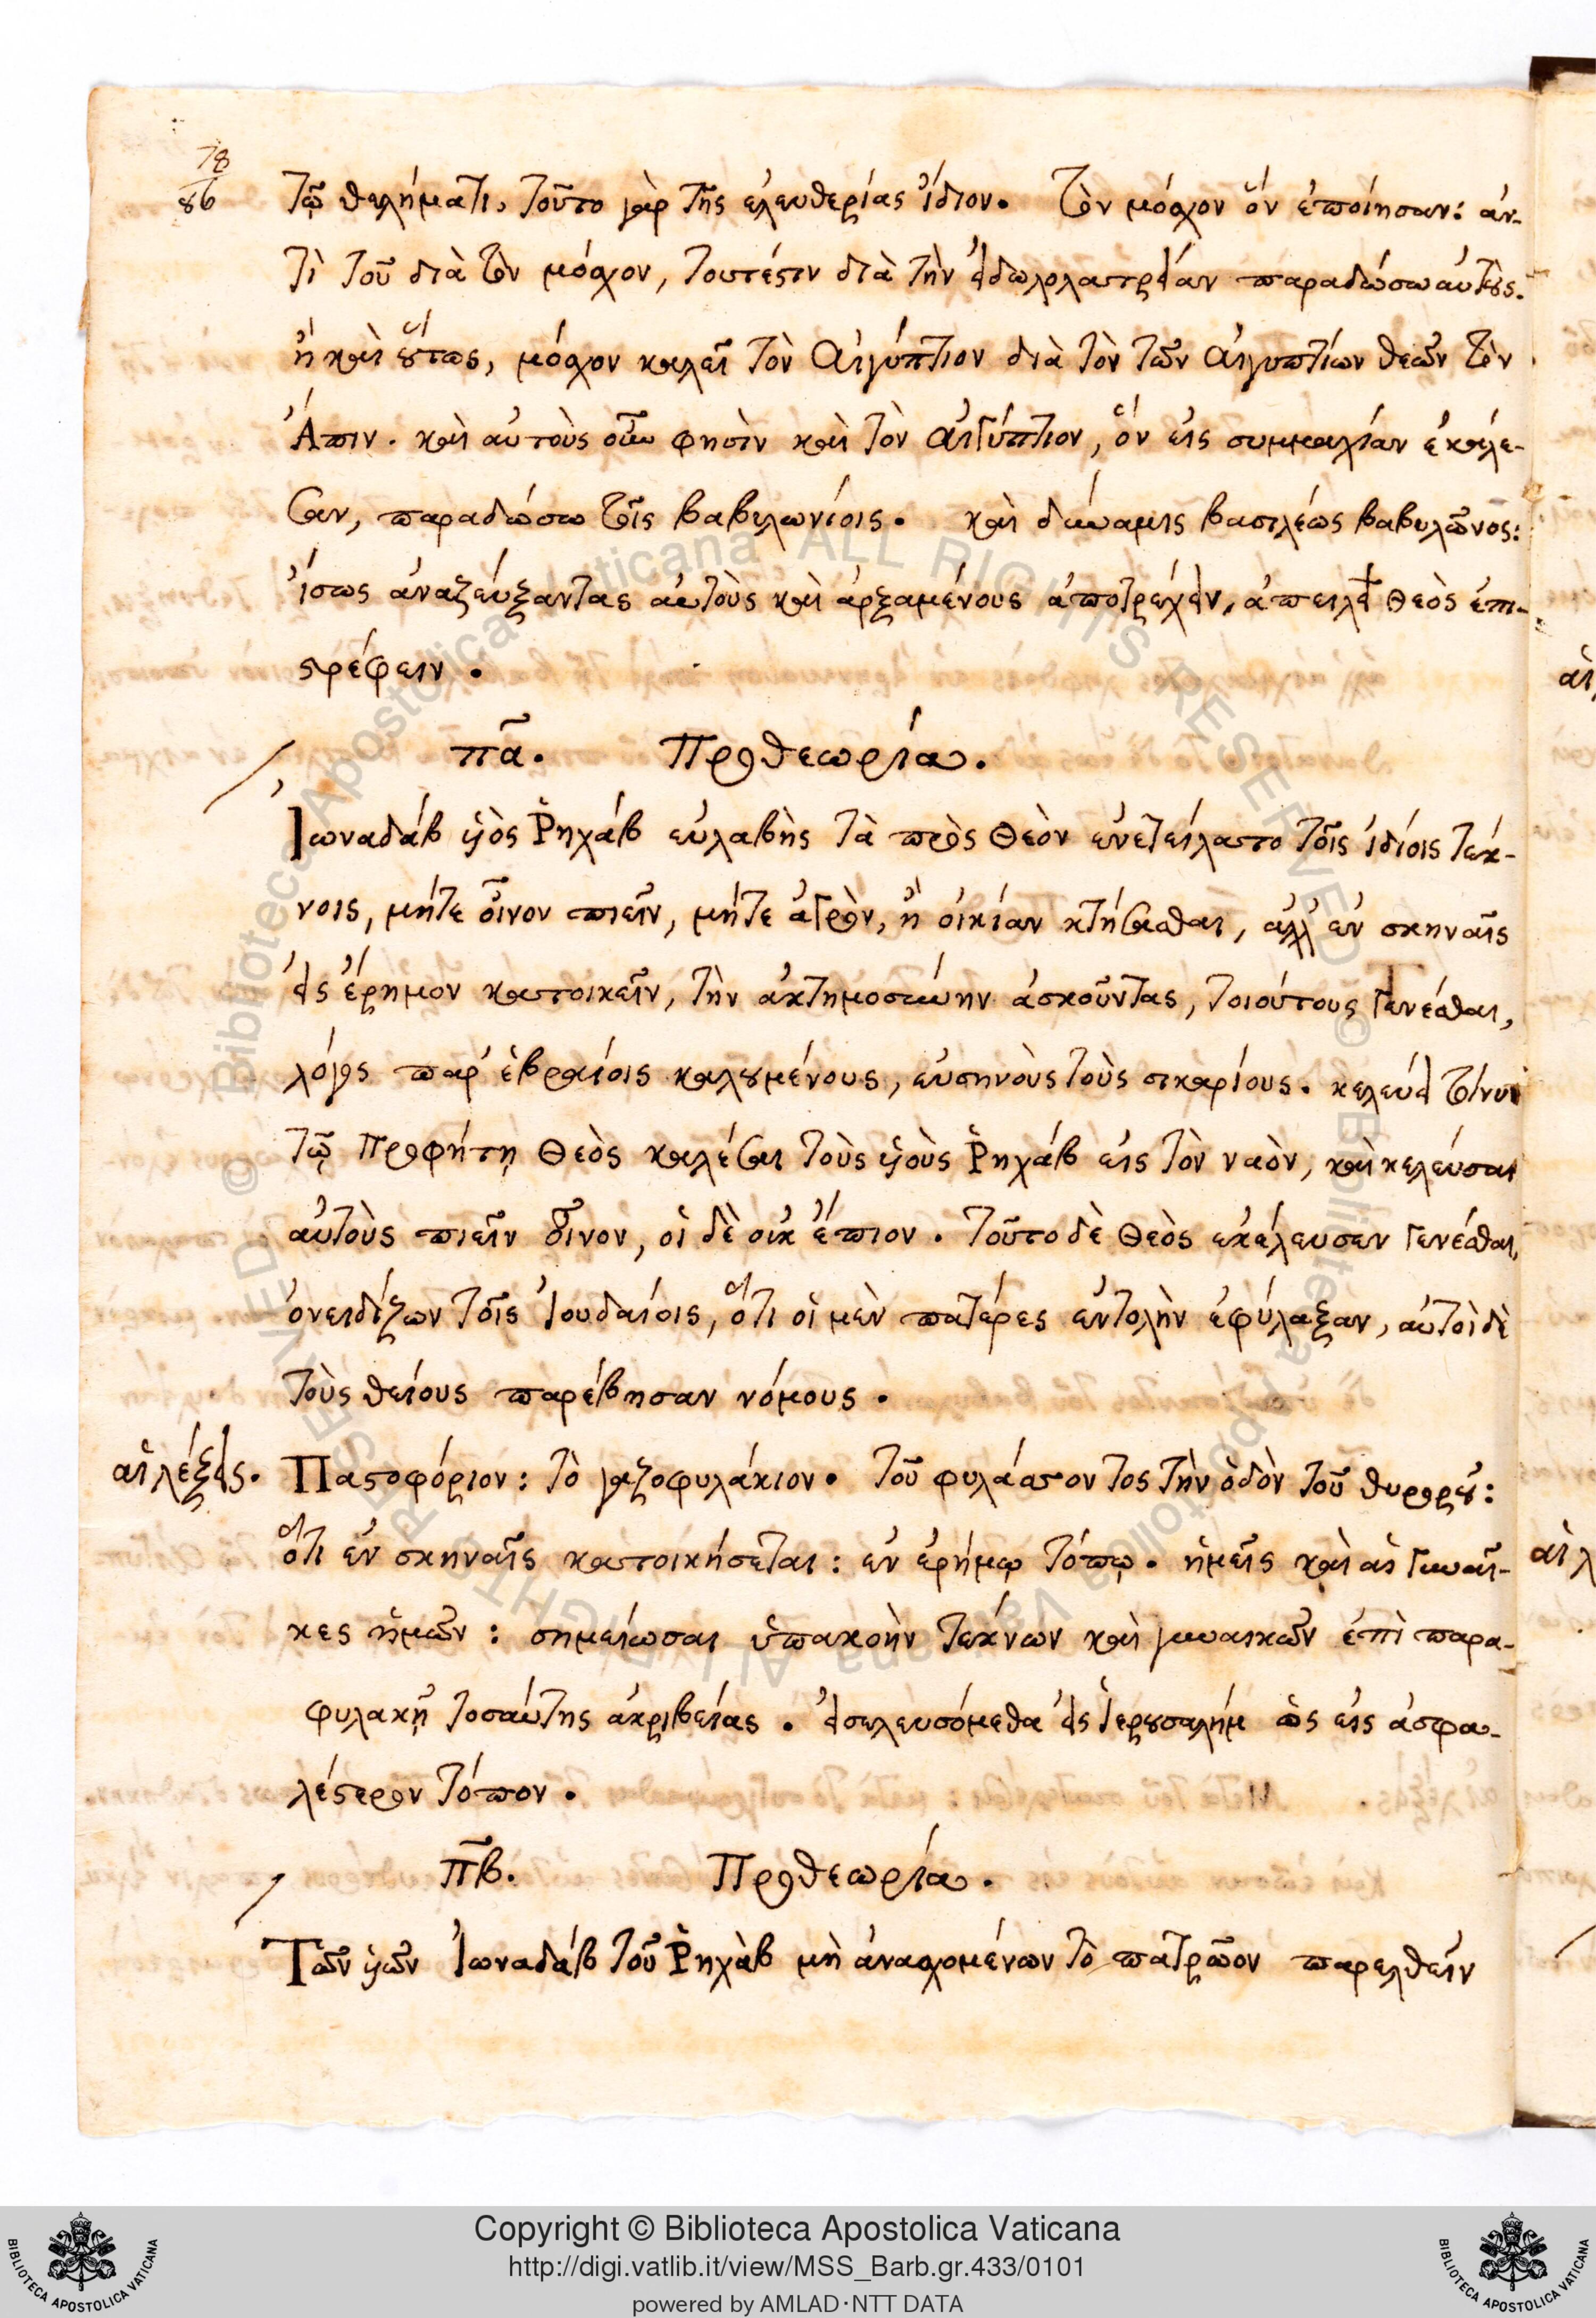 78
86
τῷ θελήματι, τοῦτο γὰρ τῆς ἐλευθερίας ἴδιον. Τὸν μόσχον ὃν ἐποίησαν: ἀν-
τὶ τοῦ διὰ τὸν μόσχον, τουτέστιν διὰ τὴν εἰδωλολατρείαν παραδώσω αὐτούς.
ἢ καὶ οὕτως, μόσχον καλεῖ τὸν Αἰγύπτιον διὰ τὸν τῶν Αἰγυπτίων θεῶν τὸν
Ἄπιν. καὶ αὐτοὺς οὖν φησὶν καὶ τὸν Αἰγύπτιον, ὃν εἰς συμμαχίαν ἐκάλε-
σαν, παραδώσω τοῖς βαβυλωνίοις. καὶ δύναμις βασιλέως βαβυλῶνος:
ἴσως ἀναζεύξαντας αὐτοὺς καὶ ἀρξαμένους ἀποτρέχειν, ἀπειλεῖ Θεὸς ἐπι-
στρέφειν.
πα. Προθεωρία.
Ἰωναδάβ υἱὸς Ῥηχάβ εὐλαβὴς τὰ πρὸς Θεὸν ἐνετείλατο τοῖς ἰδίοις τέκ-
νοις, μήτε οἶνον πιεῖν, μήτε ἀγρὸν, ἢ οἰκίαν κτήσασθαι, ἀλλ' ἐν σκηναῖς
εἰς ἔρημον κατοικεῖν, τὴν ἀκτημοσύνην ἀσκοῦντας, τοιούτους γενέσθαι,
λόγος παρ' ἑβραίοις καλουμένους, εὐσηνοὺς τοὺς σικαρίους. κελεύει τοίνυν
τῷ Προφήτῃ Θεὸς καλέσαι τοὺς υἱοὺς Ῥηχάβ εἰς τὸν ναὸν, καὶ κελεύσαι
αὐτοὺς πιεῖν οἶνον, οἱ δὲ οὐκ ἔπιον. Τοῦτο δὲ Θεὸς ἐκέλευσεν γενέσθαι,
ὀνειδίζων τοῖς Ἰουδαίοις, ὅτι οἱ μὲν πατέρες ἐντολὴν ἐφύλαξαν, αὐτοὶ δὲ
τοὺς θείους παρέβησαν νόμους.
αἱ λέξεις. Παστοφόριον: τὸ γαζοφυλάκιον. Τοῦ φυλάσσοντος τὴν ὁδὸν τοῦ θυρωροῦ:
ὅτι ἐν σκηναῖς κατοικήσεται: ἐν ἐρήμῳ τόπῳ. ἡμεῖς καὶ αἱ γυναῖ-
κες ἡμῶν: σημείωσαι ὑπακοὴν τέκνων καὶ γυναικῶν ἐπὶ παρα-
φυλακῇ τοσαύτης ἀκριβείας. εἰσελευσόμεθα εἰς Ἱερουσαλήμ ὡς εἰς ἀσφα-
λέστερον τόπον.
πβ. Προθεωρία.
Τῶν υἱῶν Ἰωναδάβ τοῦ Ῥηχὰβ μὴ ἀνασχομένων τὸ πατρῶον παρελθεῖν
Copyright © Biblioteca Apostolica Vaticana
http://digi.vatlib.it/view/MSS_Barb.gr.433/0101
powered by AMLAD·NTT DATA